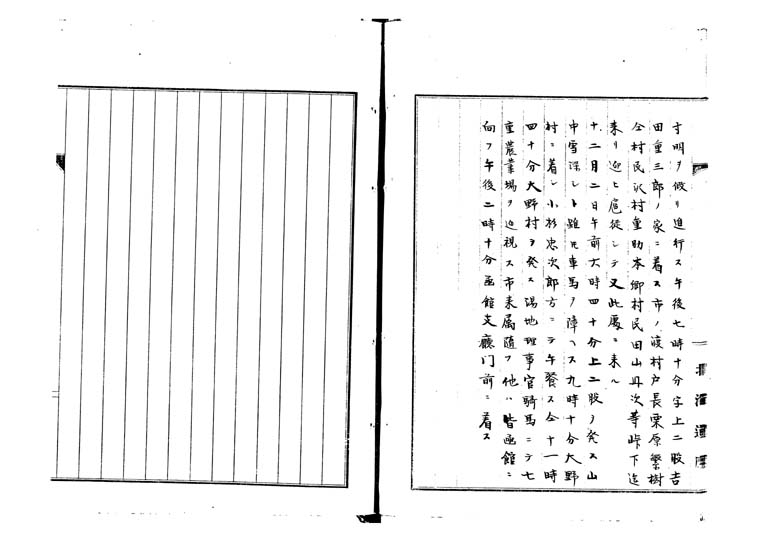 寸明ヲ假リ進行ス午後七時十分字上二股吉
田重三郎ノ家ニ着ス市ノ渡村戸長栗原繁樹
仝村民沢村重助本郷村民田山丹次等峠下迄
来リ迎ヒ扈従シテ又此處ニ来ル
十二月二日午前六時四十分上二股ヲ発ス山
中雪深シト雖𪜈車馬ノ障ヘス九時十分大野
村ニ着シ小杉忠次郎方ニテ午餐ス仝十一時
四十分大野村ヲ発ス湯地理事官騎馬ニテ七
重農業場ヲ巡視ス市来属随フ他ハ皆函館ニ
向フ午後二時十分函館支廳门前ニ着ス